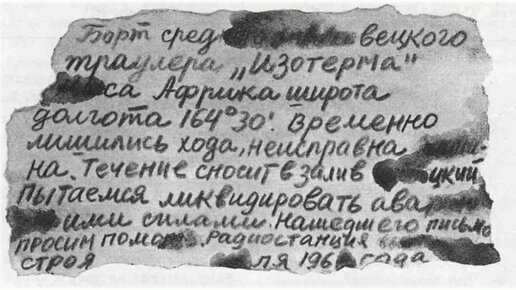 Борт сред вецкого
траулера „Изотерма"
са Африка широта
долгота 164°30'. Временно
лишились хода, неисправна
на. Течение сносит в залив цкий
пытаемся ликвидировать ава
ими силами. Нашедшего письмо
просим помо . Радиостанция
строя ля 196 года